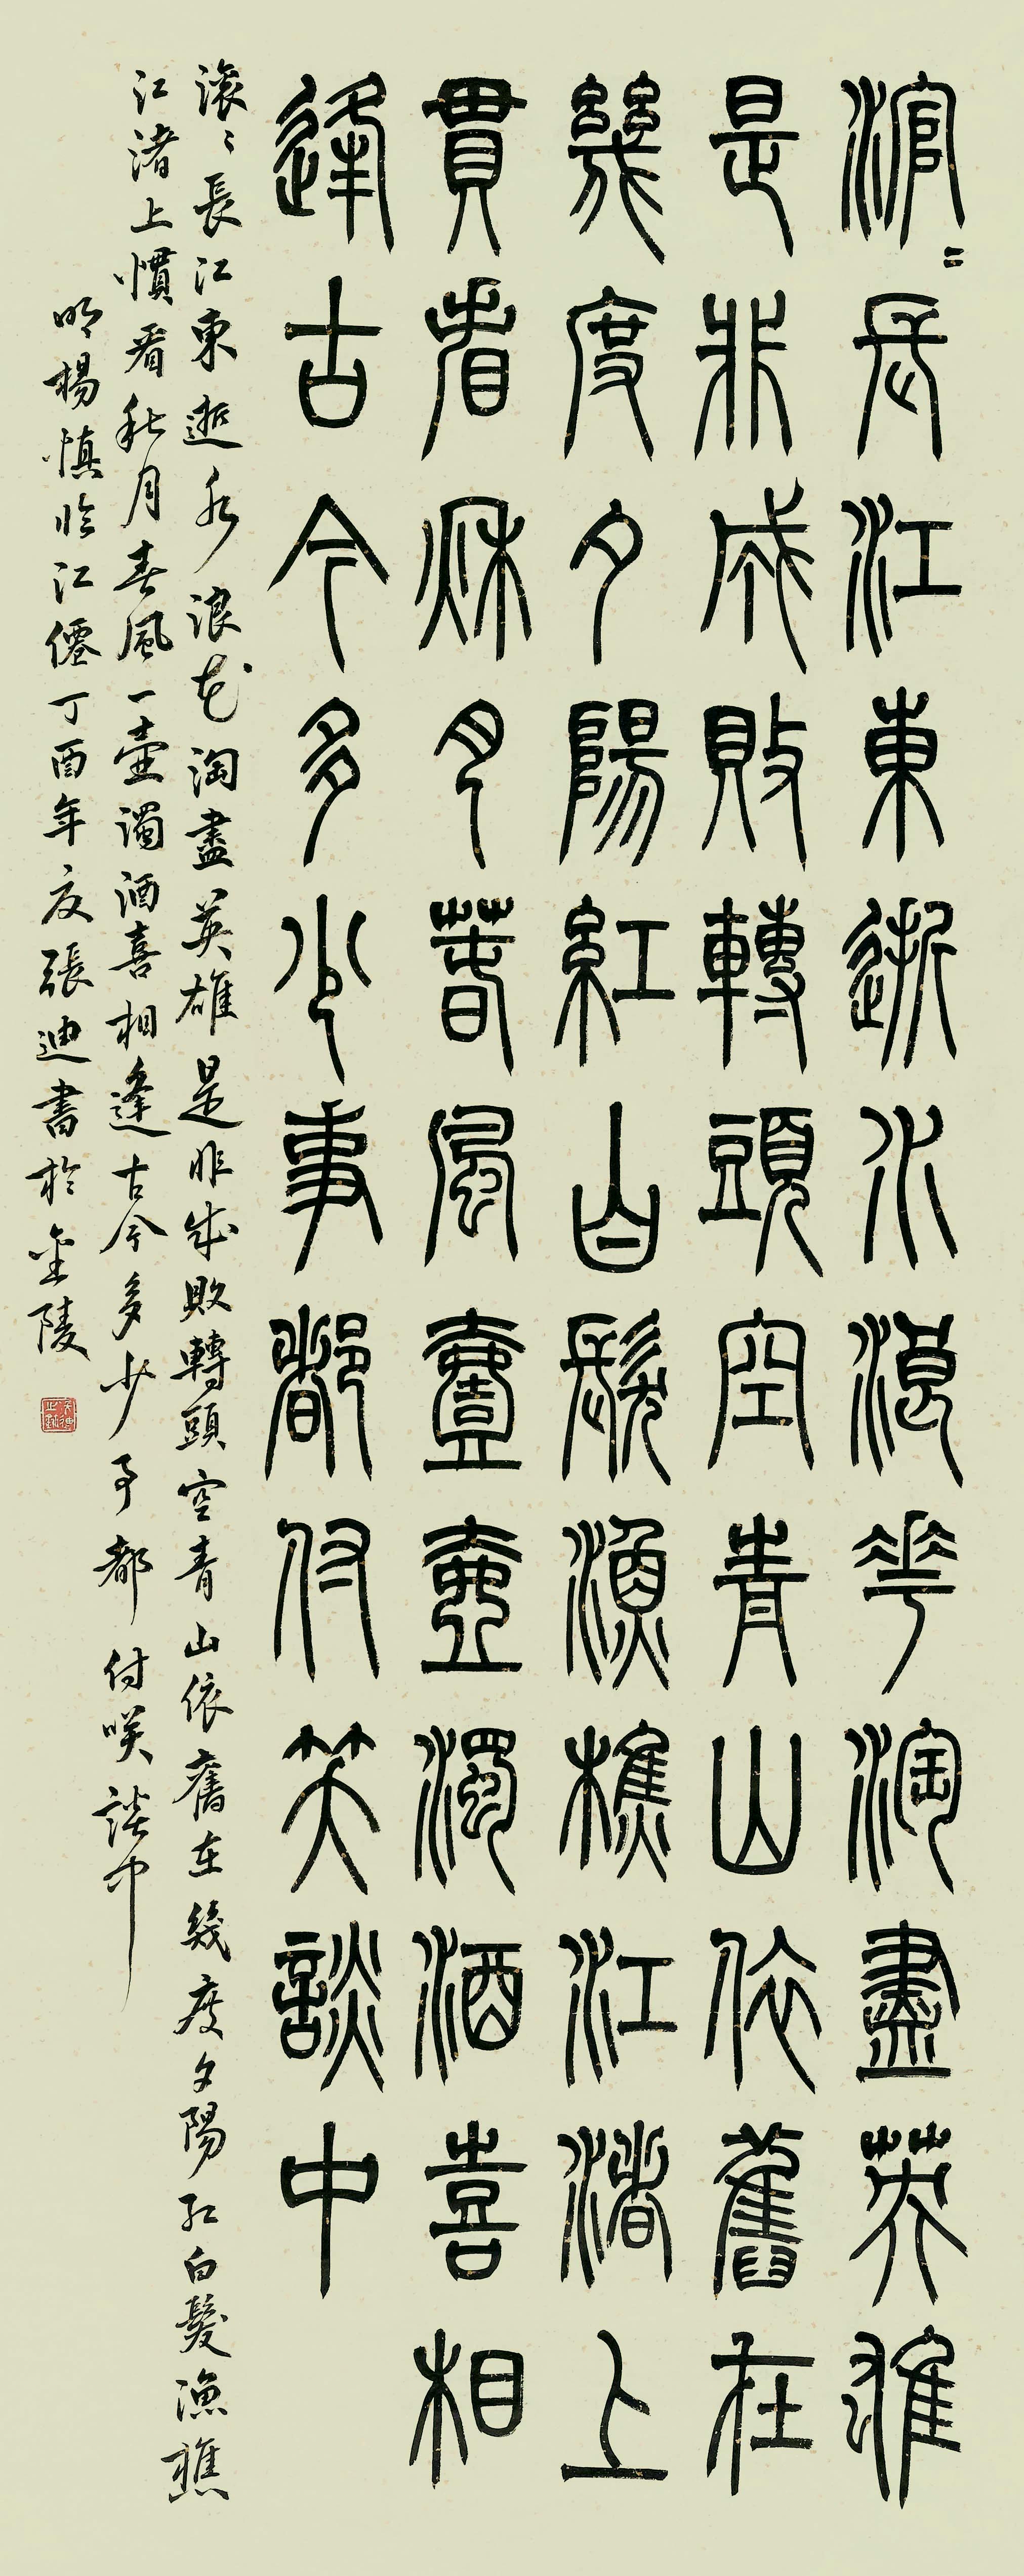 滾〻長江東逝水浪花淘盡英雄
是非成敗轉頭空青山依舊在
幾度夕陽紅白髮漁樵江渚上
貫看秌月春風壹壺濁酒喜相
逢古今多少事都付笑談中
滾〻長江東逝水浪花淘盡英雄是非成敗轉頭空青山依舊在幾度夕陽紅白髮漁樵
江渚上慣看秋月春風一壺濁酒喜相逢古今多少事都付咲談中
明楊慎臨江僊丁酉年夏張迪書於金陵